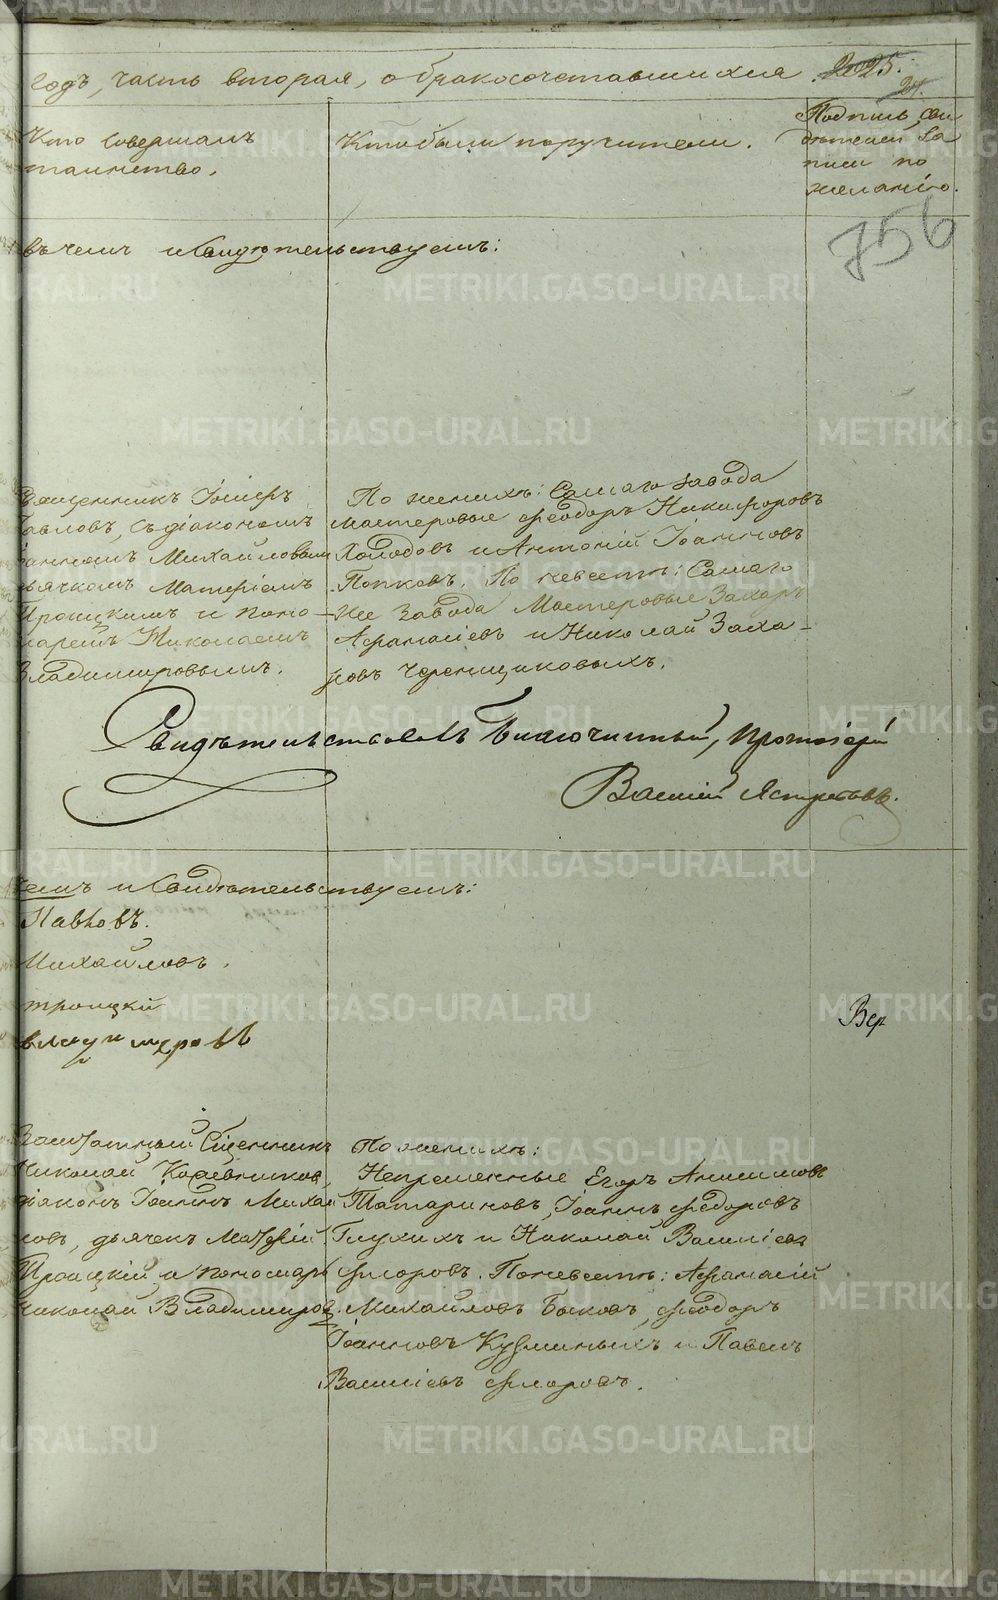 годъ, часть вторая, о бракосочетавшихся.
25.
24.
Кто совершалъ
таинство.
Кто были поручители.
Подпись сви
дѣтелей за
писи по
желанію.
756
въ чемъ и Свидѣтельствуемъ:
Священникъ Іосифъ
Павловъ, съ діакономъ
Іоанномъ Михайловымъ
дьячкомъ Матѳіемъ
Троицкимъ и поно-
маремъ Николаемъ
Владимировымъ.
По женихѣ: Самаго завода
мастеровые Ѳеодоръ Никифоровъ
Холодовъ и Антоній Іоанновъ
Попковъ. По невестѣ: Самаго
же завода Мастеровые Захаръ
Афанасіевъ и Николай Заха-
ровъ Черенщиковыхъ.
Свидѣтельствовалъ Благочинный, протоіерей
Василій Ястребовъ.
чемъ и Свидѣтельствуемъ:
Павловъ.
Михайловъ.
троицкій
владимеровъ
Вер
Заштатный Сщенникъ
Николай Коровниковъ,
діаконъ Іоаннъ Михай
ловъ, дьячекъ Матѳей
Троицкій и пономарь
Николай Владимиров.
По женихѣ:
Непременные Егоръ Анисимовъ
Татариновъ, Іоаннъ Ѳедоровъ
Глухихъ и Николай Василіевъ
Флоровъ. По невестѣ: Афанасій
Михайловъ Быковъ, Ѳеодоръ
Іоанновъ Кузминыхъ и Павелъ
Василіевъ Флоровъ.
METRIKI.GASO-URAL.RU